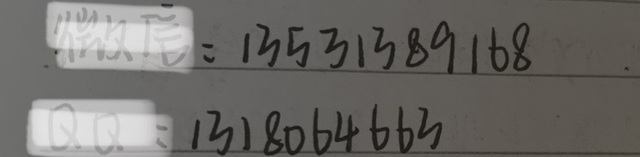 微信:13531389168
QQ:1318064663